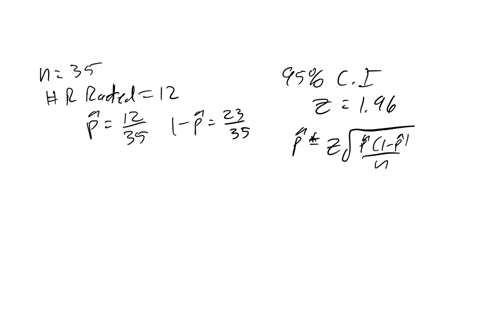 n = 35
# R Rated = 12
p̂ = 12/35 1-p̂ = 23/35
95% C.I
z = 1.96
p̂ ± z√(p̂(1-p̂)/n)